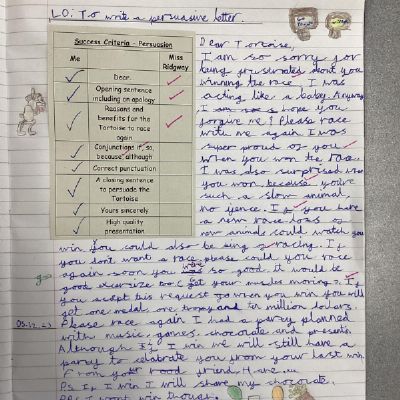 LO: To write a persuasive letter.
Success Criteria - Persuasion
Me
Miss Ridgway
Dear
Opening sentence including an apology
Reasons and benefits for the Tortoise to race again
Conjunctions if, so, because, although
Correct punctuation
A closing sentence to persuade the Tortoise
Yours sincerely
High quality presentation
Dear Tortoise,
I am so sorry for
being so about you
winning the race. I was
acting like a baby. Anyway
I hope you
forgive me? Please race
with me again. I was
super proud of you
when you won the race.
I was also surprised when
you won, because you're
such a slow animal,
no fence. If you have
a new race loads of
new animals could watch you
win you could also be racing. If
you don't want a race please could you race
again soon you so good. It would be
good exersize too (get your muscles moving). If
you axept this request when you win you will
get one medal, one trophy and million dollars.
03.11.23
Please race again I had a party planned
with music, games, chocolate and presents.
Although If I win we will still have a
party to celabrate you from your last win
From your good friend Hare
Ps If I win I will share my chocolate.
PPs I wont win though.